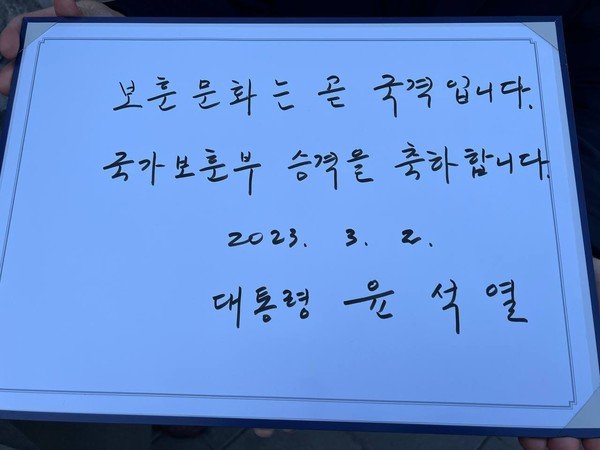 보훈문화는 곧 국격입니다.
국가보훈부 승격을 축하합니다.
2023. 3. 2.
대통령 윤석열